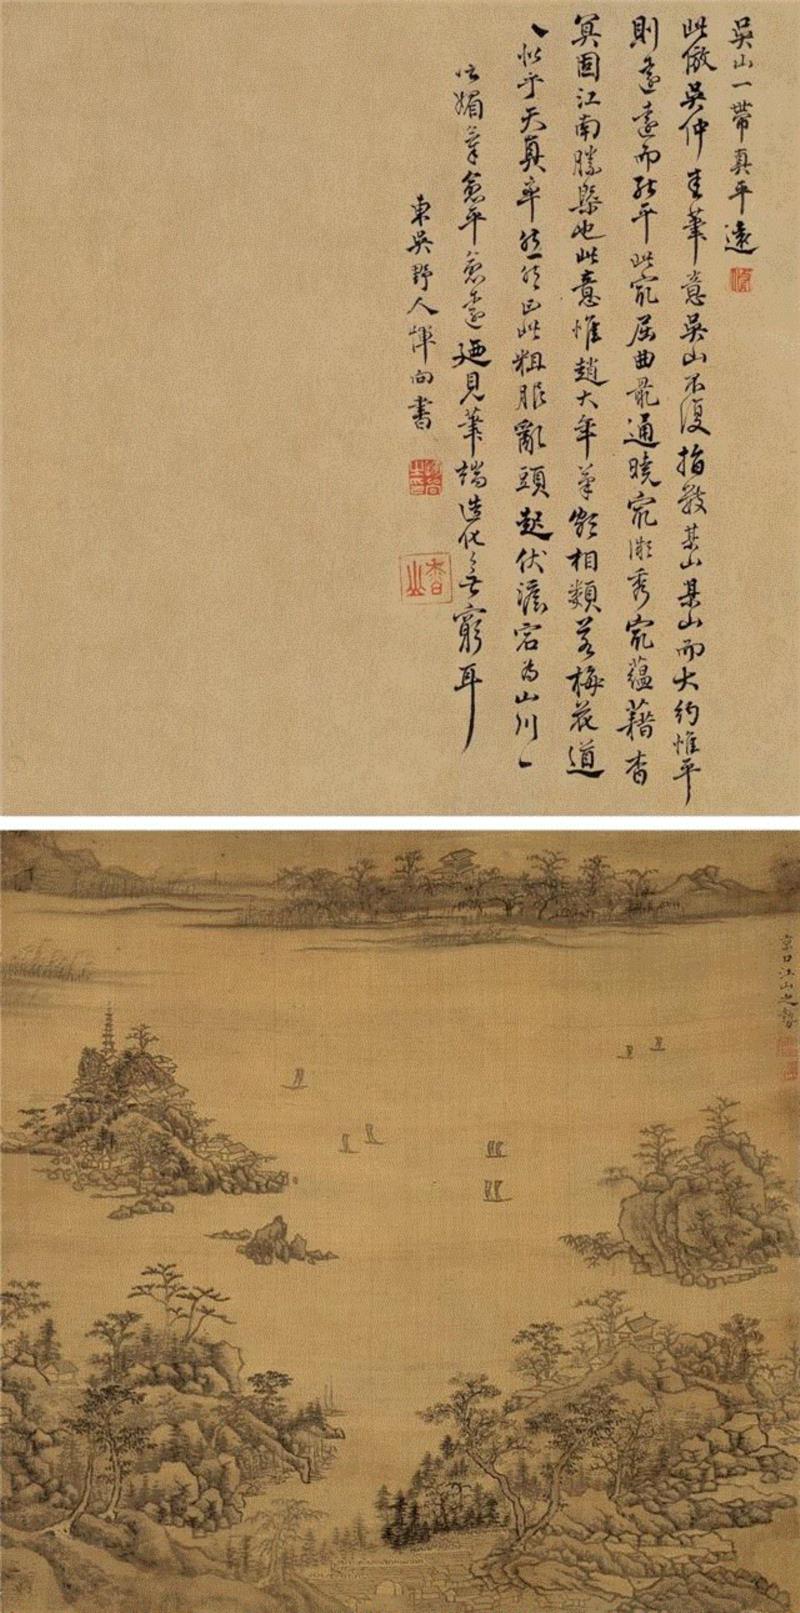 吳山一帶真平遠
此倣吳仲圭筆意吳山不復指數某山某山而大約惟平
則遠遠而能平此最屈曲最通曉最澹秀最蘊藉杳
冥固江南勝槩也此意惟趙大年筆能相類若梅花道
人似乎天真率然然已此粗服亂頭起伏濃宕為山川
以媚筆愈平愈遠廼見筆端造化無窮耳
東吳野人惲向書
香山
京口江山之勝